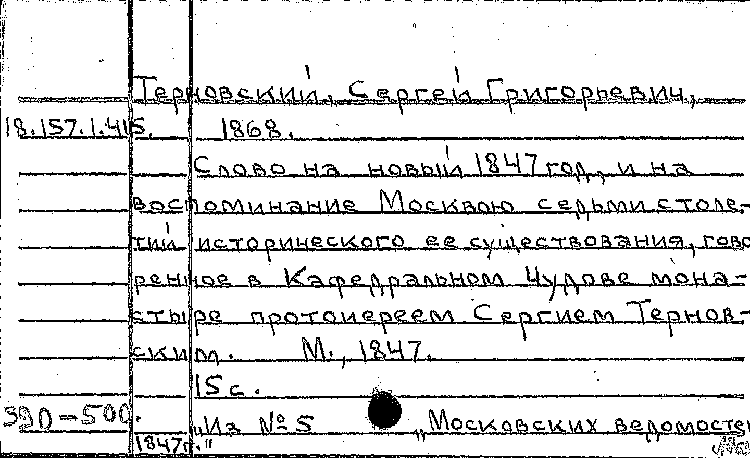 Терновский, Сергей Григорьевич,
18.157.1.415. 1868.
Слово на новый 1847 год, и на
воспоминание Москвою седьми столе-
тий исторического ее существования, гово
ренное в Кафедральном Чудове мона-
стыре протоиереем Сергием Тернов-
ским. М., 1847.
15 с.
390-500.
„Из № 5 „Московских ведомостей
1847г."